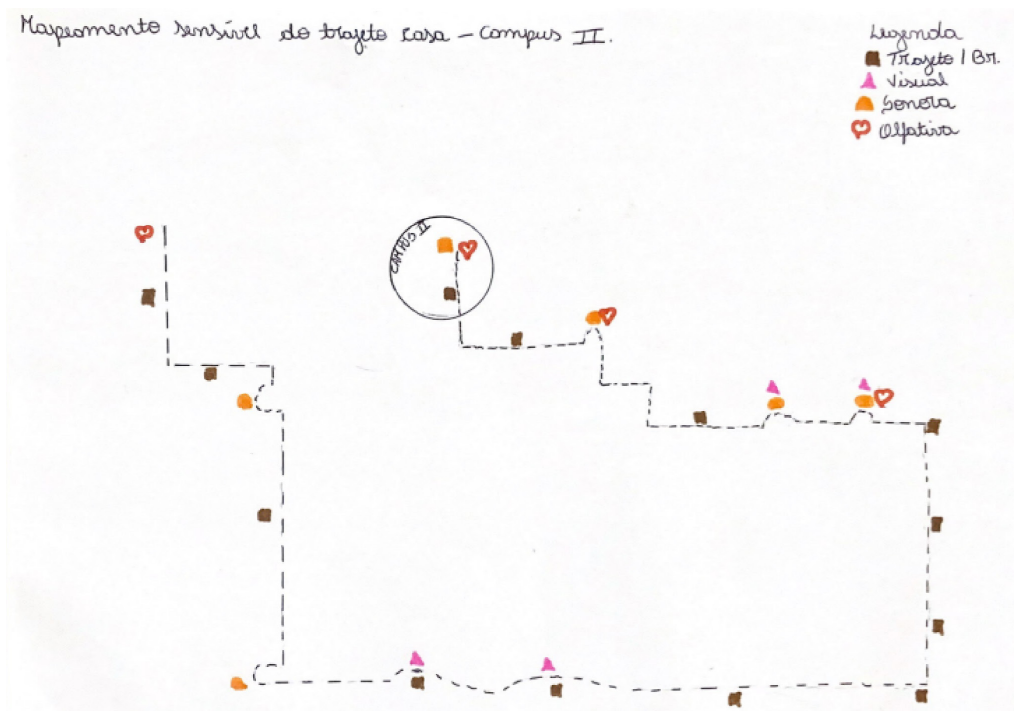 Mapeamento sensível do trajeto casa – Campus II.
Legenda
Trajeto / Br.
Visual
Sonora
Olfativa
CAMPUS II